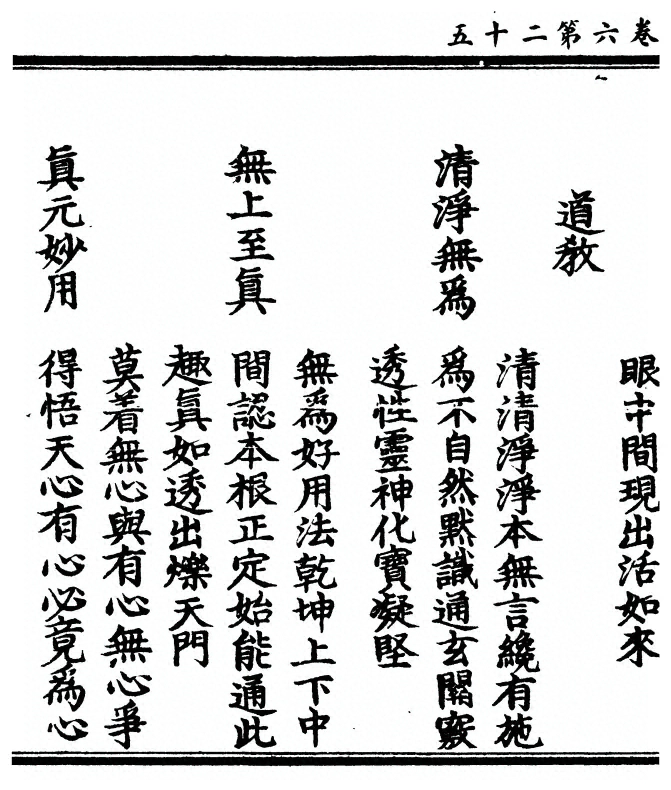 卷六第二十五
眼中間現出活如來
道教
清清淨淨本無言纔有施
清淨無爲 爲不自然默識通玄關竅
透性靈神化寶凝堅
無爲好用法乾坤上下中
無上至眞 間認本根正定始能通此
趣眞如透出爍天門
莫着無心與有心無心爭
眞元妙用 得悟天心有心必竟爲心